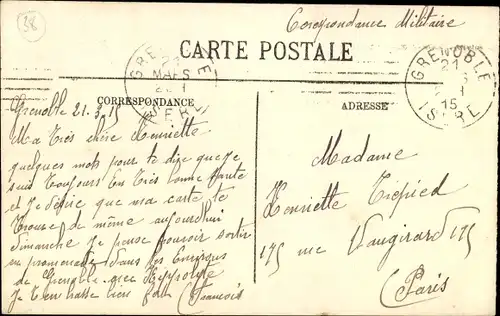 38
Correspondance Militaire
CARTE POSTALE
GRENOBLE
MARS
ISERE
GRENOBLE
21
15
ISERE
CORRESPONDANCE
ADRESSE
Grenoble 21.3.15
Ma très chère Henriette
quelques mots pour te dire que je
suis toujours en très bonne santé
et je désire que ma carte te
trouve de même aujourd'hui
dimanche je pense pouvoir sortir
en promenade dans les environs
de Grenoble avec Hippolyte
Je t'embrasse bien fort François
Madame
Henriette Tiepied
175 rue Vaugirard 175
Paris